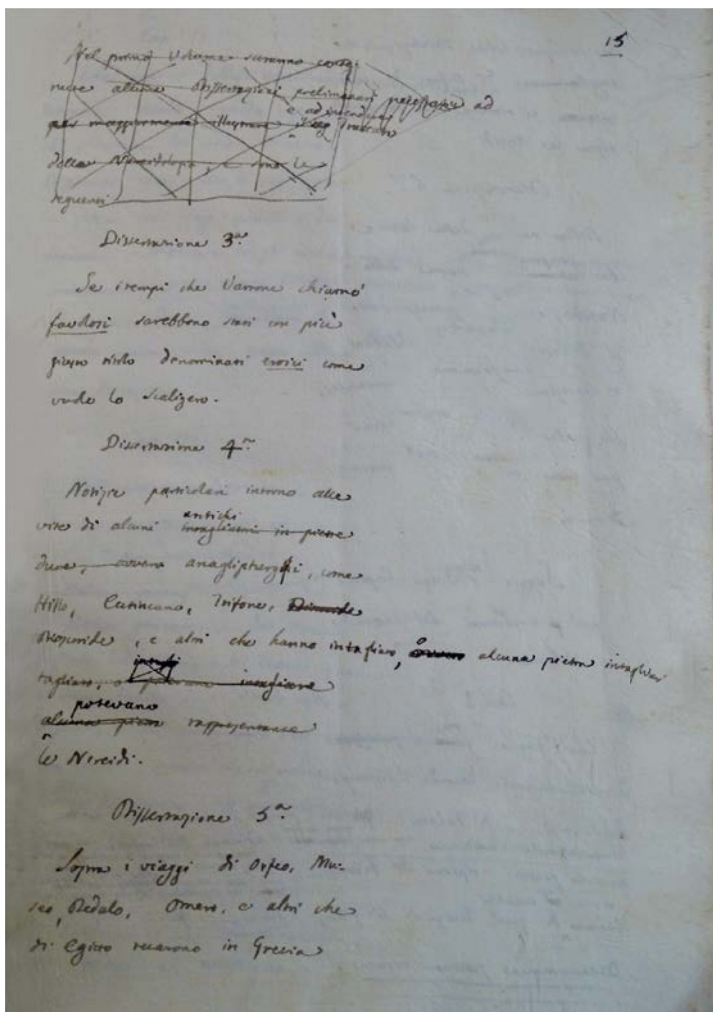 15
Nel primo Volume saranno conte-
nute alcune Dissertazioni preliminari necessarie ad
per maggiormente illustrare e ad intendere il Trattato
della Nereidologia, e sono le
seguenti
Dissertazione 3.a
Se i tempi che Varrone chiamò
favolosi sarebbono stati con più
giusto titolo denominati eroici come
vuole lo Scaligero.
Dissertazione 4.a
Notizie particolari intorno alle
vite di alcuni antichi intagliatori in pietre
dure, ovvero anagliptergi, come
Hillo, Eutincano, Trifone,
Dioscuride, e altri che hanno intagliato, o alcuna pietra intagliar
tagliato, o potevano intagliare
potevano
alcuna pietra rappresentante
le Nereidi.
Dissertazione 5.a
Sopra i viaggi di Orfeo, Mu-
seo, Dedalo, Omero, e altri che
di Egitto recarono in Grecia